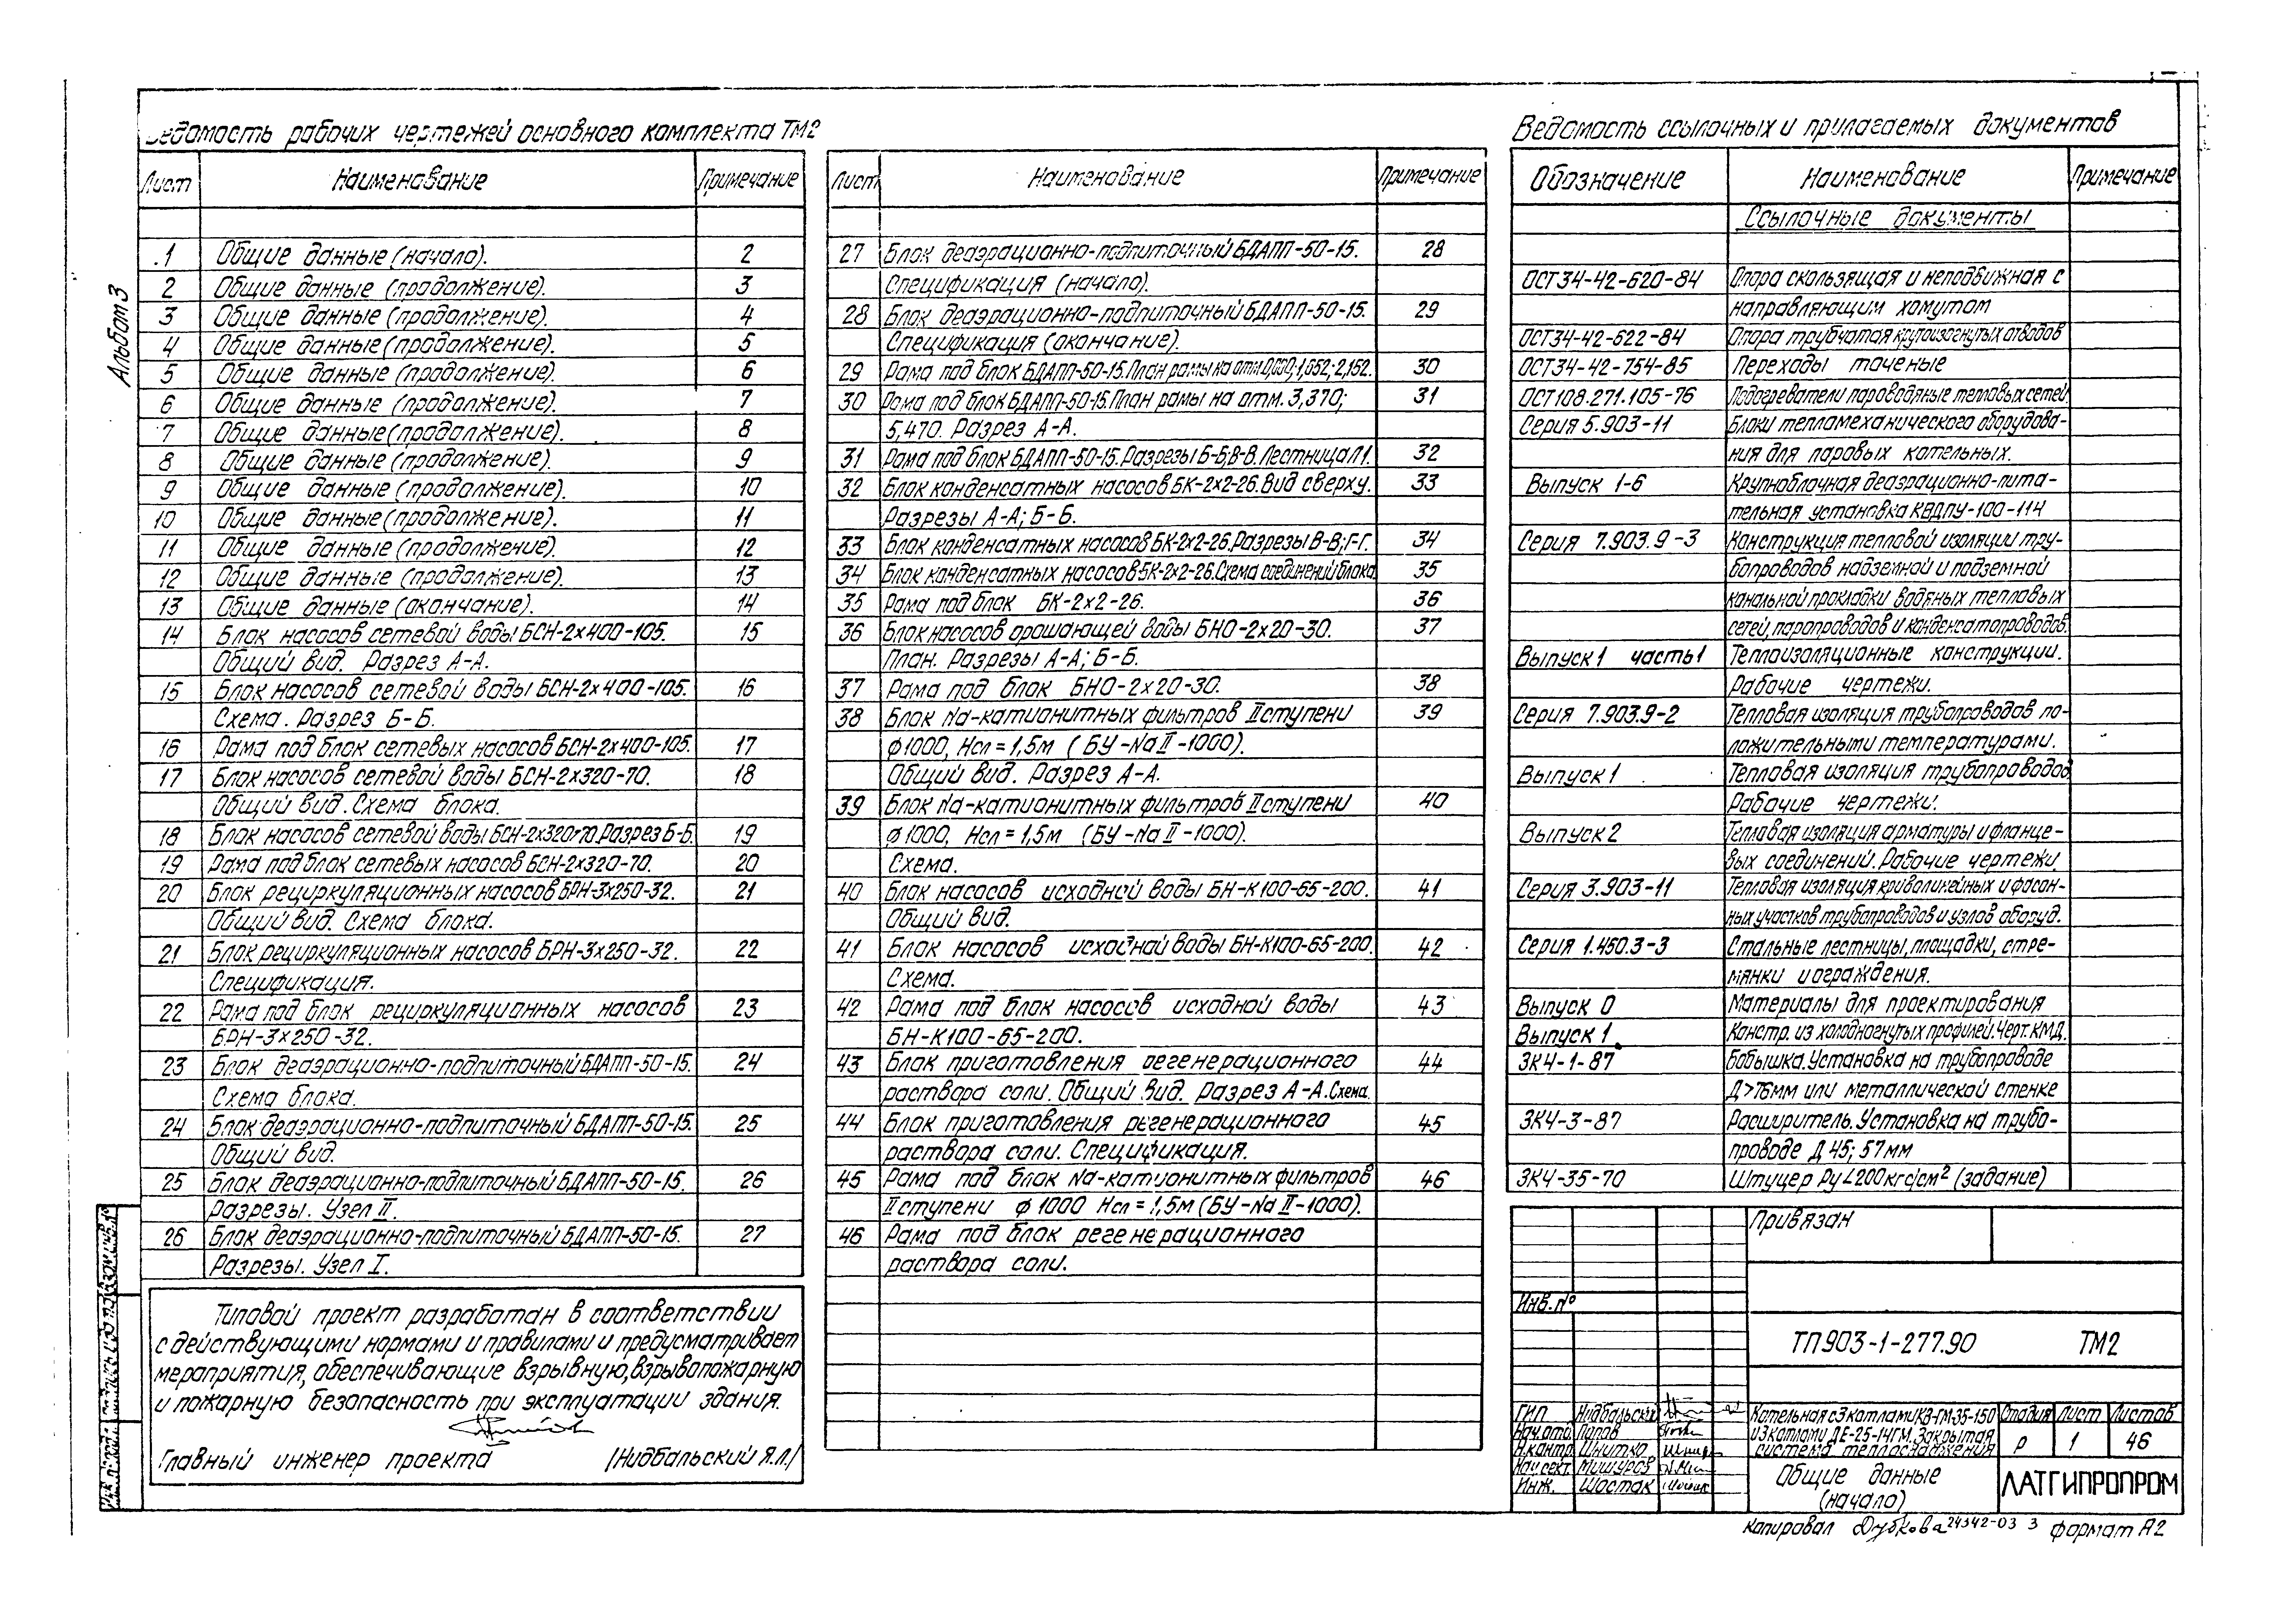 Альбом 3
Ведомость рабочих чертежей основного комплекта ТМ2
Лист Наименование Примечание
1 Общие данные (начало). 2
2 Общие данные (продолжение). 3
3 Общие данные (продолжение). 4
4 Общие данные (продолжение). 5
5 Общие данные (продолжение). 6
6 Общие данные (продолжение). 7
7 Общие данные (продолжение). 8
8 Общие данные (продолжение). 9
9 Общие данные (продолжение). 10
10 Общие данные (продолжение). 11
11 Общие данные (продолжение). 12
12 Общие данные (продолжение). 13
13 Общие данные (окончание). 14
14 Блок насосов сетевой воды БСН-2х400-105. 15
Общий вид. Разрез А-А.
15 Блок насосов сетевой воды БСН-2х400-105. 16
Схема. Разрез Б-Б.
16 Рама под блок сетевых насосов БСН-2х400-105. 17
17 Блок насосов сетевой воды БСН-2х320-70. 18
Общий вид. Схема блока.
18 Блок насосов сетевой воды БСН-2х320-70. Разрез Б-Б. 19
19 Рама под блок сетевых насосов БСН-2х320-70. 20
20 Блок рециркуляционных насосов БРН-3х250-32. 21
Общий вид. Схема блока.
21 Блок рециркуляционных насосов БРН-3х250-32. 22
Спецификация.
22 Рама под блок рециркуляционных насосов 23
БРН-3х250-32.
23 Блок деаэрационно-подпиточный БДАПП-50-15. 24
Схема блока.
24 Блок деаэрационно-подпиточный БДАПП-50-15. 25
Общий вид.
25 Блок деаэрационно-подпиточный БДАПП-50-15. 26
Разрезы. Узел II.
26 Блок деаэрационно-подпиточный БДАПП-50-15. 27
Разрезы. Узел I.
Типовой проект разработан в соответствии
с действующими нормами и правилами и предусматривает
мероприятия, обеспечивающие взрывную, взрывопожарную
и пожарную безопасность при эксплуатации здания.
Главный инженер проекта /Нидбальский Я.Л./
Лист Наименование Примечание
27 Блок деаэрационно-подпиточный БДАПП-50-15. 28
Спецификация (начало).
28 Блок деаэрационно-подпиточный БДАПП-50-15. 29
Спецификация (окончание).
29 Рама под блок БДАПП-50-15. План рамы на отм. 0,000; 1,652; 2,152. 30
30 Рама под блок БДАПП-50-15. План рамы на отм. 3,370; 31
5,470. Разрез А-А.
31 Рама под блок БДАПП-50-15. Разрезы Б-Б; В-В. Лестница Л1. 32
32 Блок конденсатных насосов БК-2х2-26. Вид сверху. 33
Разрезы А-А; Б-Б.
33 Блок конденсатных насосов БК-2х2-26. Разрезы В-В; Г-Г. 34
34 Блок конденсатных насосов БК-2х2-26. Схема соединений блока. 35
35 Рама под блок БК-2х2-26. 36
36 Блок насосов орошающей воды БНО-2х20-30. 37
План. Разрезы А-А; Б-Б.
37 Рама под блок БНО-2х20-30. 38
38 Блок Na-катионитных фильтров II ступени 39
ф1000, Нсл = 1,5м (БУ-Na II-1000).
Общий вид. Разрез А-А.
39 Блок Na-катионитных фильтров II ступени 40
ф1000, Нсл = 1,5м (БУ-Na II-1000).
Схема.
40 Блок насосов исходной воды БН-К100-65-200. 41
Общий вид.
41 Блок насосов исходной воды БН-К100-65-200. 42
Схема.
42 Рама под блок насосов исходной воды 43
БН-К100-65-200.
43 Блок приготовления регенерационного 44
раствора соли. Общий вид. Разрез А-А. Схема.
44 Блок приготовления регенерационного 45
раствора соли. Спецификация.
45 Рама под блок Na-катионитных фильтров 46
II ступени ф 1000 Нсл = 1,5м (БУ-Na II-1000).
46 Рама под блок регенерационного
раствора соли.
Ведомость ссылочных и прилагаемых документов
Обозначение Наименование Примечание
Ссылочные документы
ОСТ34-42-620-84 Опора скользящая и неподвижная с
направляющим хомутом
ОСТ34-42-622-84 Опора трубчатая крутоизогнутых отводов
ОСТ34-42-754-85 Переходы точеные
ОСТ108.271.105-76 Подогреватели пароводяные тепловых сетей
Серия 5.903-11 Блоки тепломеханического оборудова-
ния для паровых котельных.
Выпуск 1-6 Крупноблочная деаэрационно-пита-
тельная установка КВДПУ-100-114
Серия 7.903.9-3 Конструкция тепловой изоляции тру-
бопроводов надземной и подземной
канальной прокладки водяных тепловых
сетей, паропроводов и конденсатопроводов.
Выпуск 1 часть 1 Теплоизоляционные конструкции.
Рабочие чертежи.
Серия 7.903.9-2 Тепловая изоляция трубопроводов по-
ложительными температурами.
Выпуск 1 Тепловая изоляция трубопроводов
Рабочие чертежи.
Выпуск 2 Тепловая изоляция арматуры и фланце-
вых соединений. Рабочие чертежи.
Серия 3.903-11 Тепловая изоляция криволинейных и фасон-
ных участков трубопроводов и узлов оборуд.
Серия 1.450.3-3 Стальные лестницы, площадки, стре-
мянки и ограждения.
Выпуск 0 Материалы для проектирования
Выпуск 1 Констр. из холодногнутых профилей. Черт. КМД.
ЗК4-1-87 Бобышка. Установка на трубопроводе
Д>76мм или металлической стенке
ЗК4-3-87 Расширитель. Установка на трубо-
проводе Д 45; 57мм
ЗК4-35-70 Штуцер Ру<200кгс/см² (задание)
Привязан
Инв. №
ТП903-1-277.90 ТМ2
ГИП Нидбальский
Нач.отд. Попов
Н.контр. Шнитко
Нач.сект. Мишуров
Инж. Шостак
Котельная с 3 котлами КВ-ГМ-35-150
и 3 котлами ДЕ-25-14ГМ. Закрытая
система теплоснабжения
Стадия Лист Листов
Р 1 46
Общие данные
(начало)
ЛАТГИПРОПРОМ
Копировал Дубкова 24342-03 3 формат А2